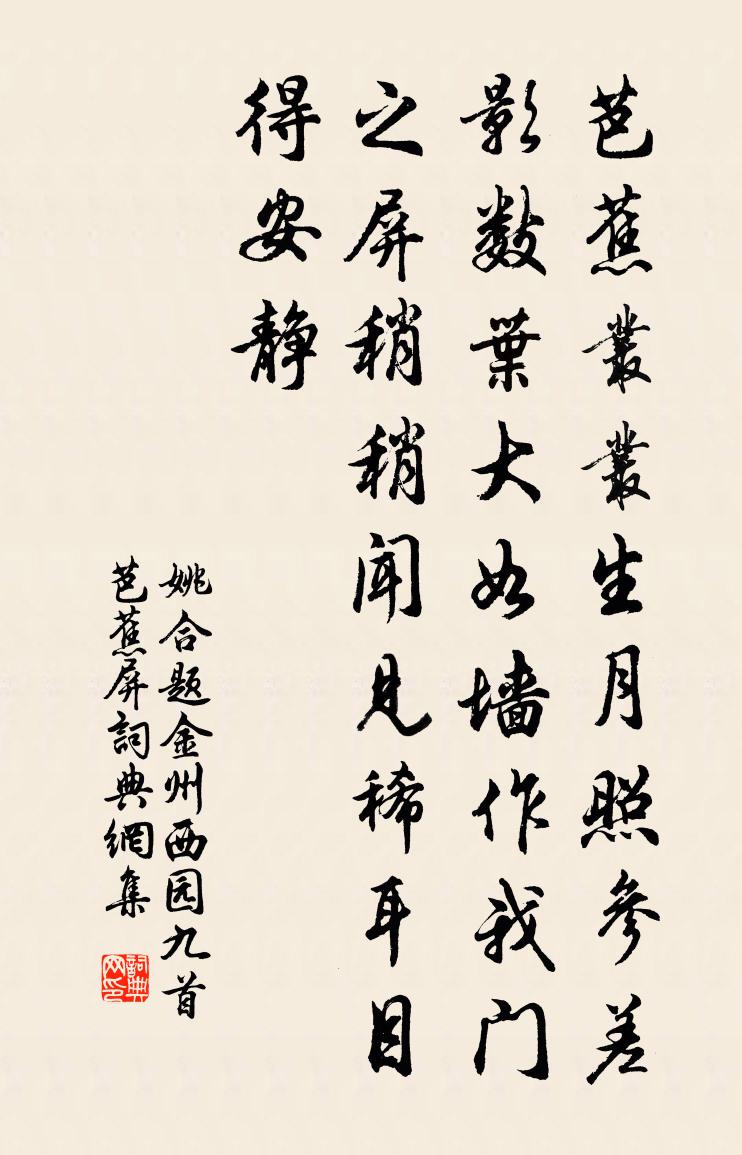 芭蕉叢叢生月照參差
影數葉大如墙作我门
之屏稍稍闻見稀耳目
得安静
姚合题金州西园九首
芭蕉屏詞典網集
詞典网印